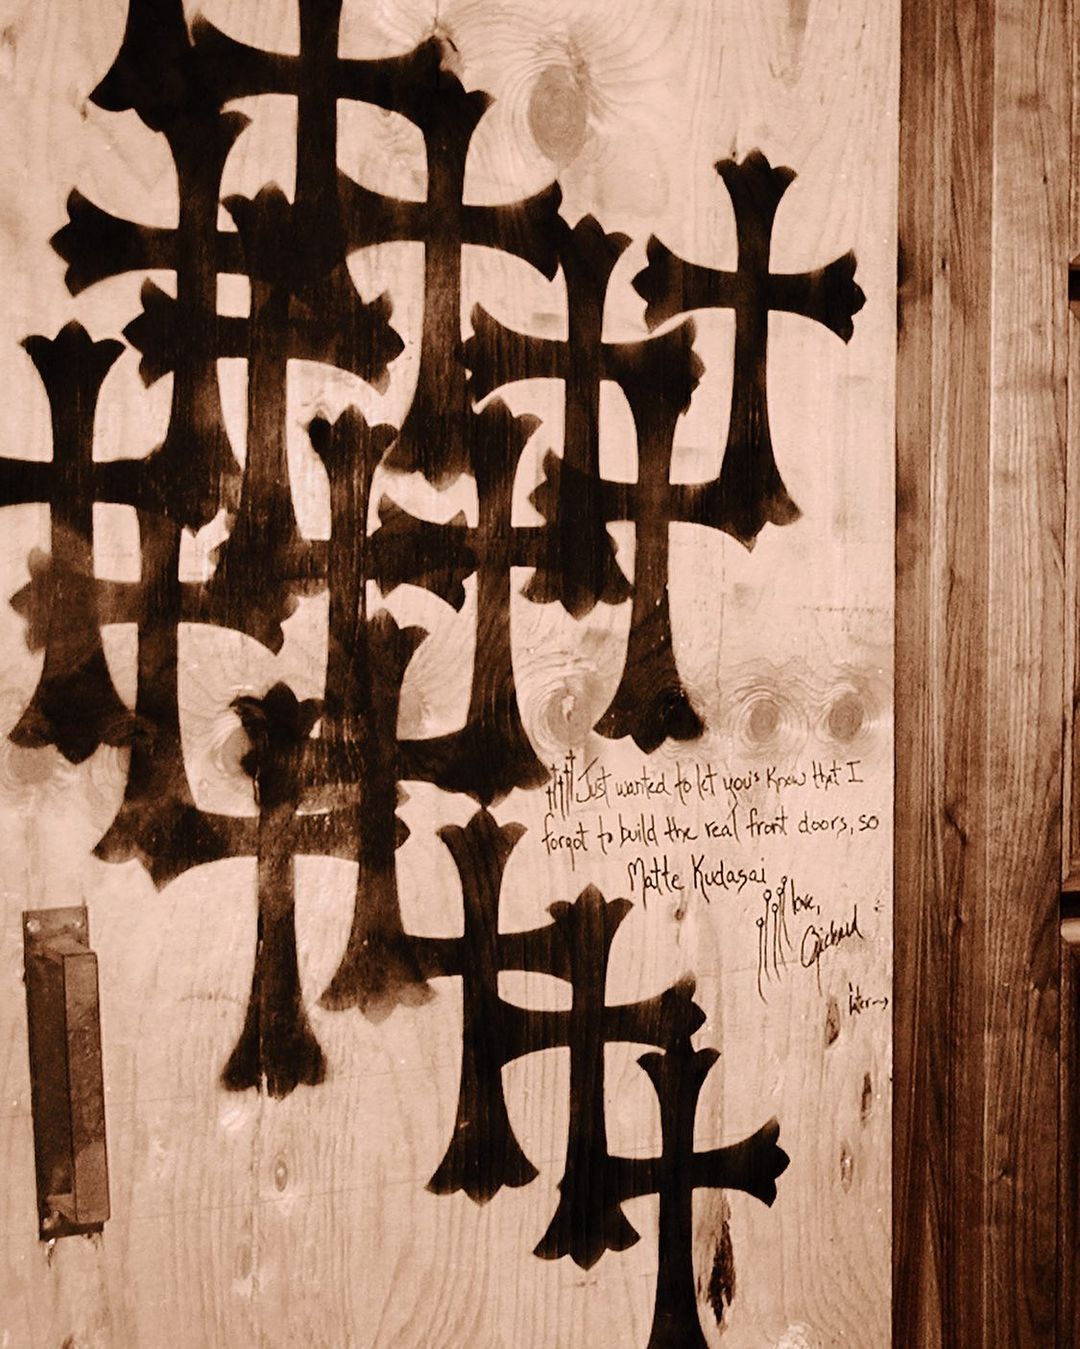 Just wanted to let you's know that I
forgot to build the real front doors, so
Matte Kudasai
love,
Richard